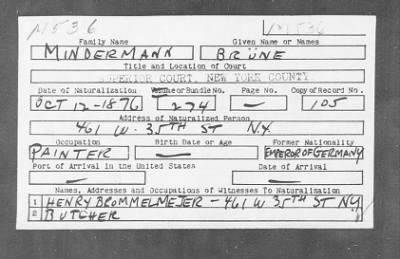 M536 M536
Family Name Given Name or Names
MINDERMANN BRÜNE
Title and Location of Court
SUPERIOR COURT, NEW YORK COUNTY.
Date of Naturalization Volume or Bundle No. Page No. Copy of Record No.
OCT 12-1876 274 — 105
Address of Naturalized Person
461 W. 35TH ST N.Y.
Occupation Birth Date or Age Former Nationality
PAINTER — EMPEROR OF GERMANY
Port of Arrival in the United States Date of Arrival
— —
Names, Addresses and Occupations of Witnesses To Naturalization
1 HENRY BROMMELMEJER - 461 W 35TH ST N.Y.
2 BUTCHER